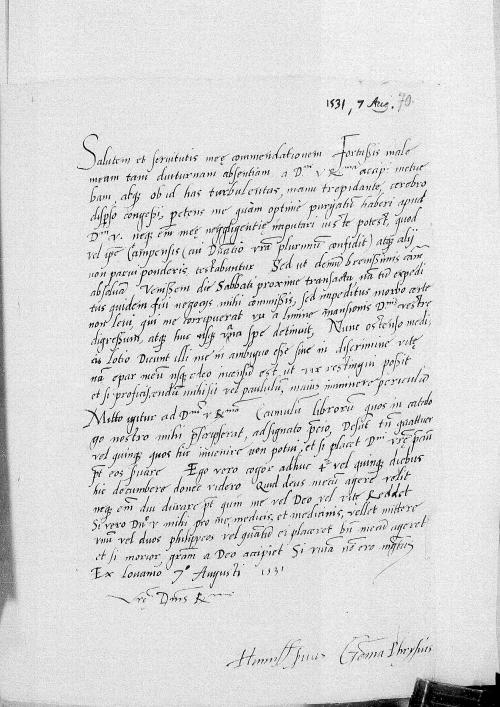 1531, 7 Aug. 70
Salutem et servitutis meę commendationem Fortassis male
meam tam diuturnam absentiam a D. v. R. accap. metue
bam, atque ob id has turbulentas, manu trepidante, cerebro
congessi, petens me quam optime purgatum haberi apud
D. v. neque em meę negligentię imputari iuste potest, quod
vel ipse Campensis (cui D.atio vra plurimum confidit) atque alij
non parui ponderis testabuntur Sed ut demum breuissimis cam
absoluam Venissem die Sabbati proxime transacta nam tum expedi
tus quidem fui negocijs mihi commissis, sed impeditus morbo certe
non leui, qui me corripuerat vix a limine mansionis D. vestre
digressum, atque huc usque spe detinuit, Nunc ostenso medi
cis lotio Dicunt illi me in ambiguo esse siue in discrimine vitę
nam epar meum usque adeo incensum est, ut vix restingui possit
et si proficiscendum mihi sit vel paululum, maius imminere periculum
Mitto igitur ad D. v. R. Cumulum librorum quos in catalo
go nostro mihi, adsignato precio, Desunt tn quattuor
vel quinque quos hic inuenire non potui, et si placet D. vrę
pt eos Ego vero cogor adhuc 4 vel quinque diebus
hic decumbere donec videro Quid deus mecum agere velit
neque em diu durare pt quin me vel Deo vel vitę Reddet
Si vero D. v. mihi pro me medicis, et medicinis, vellet mittere
vnum vel duos philippeos vel quantum ei placeret bn mecum ageret
et si morior, gram a Deo accipiet Si viuam non ero ingratus
Ex Louanio 7º Augusti 1531
Vrę D. R.
Gemma Phrysius